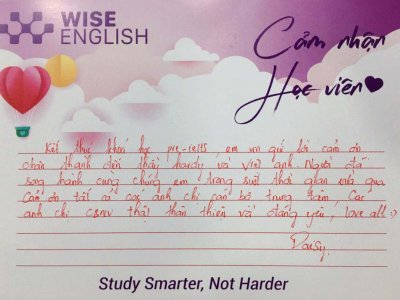 WISE
ENGLISH
Cảm nhận
Học viên
Kết thúc khoá học pre-ielts, em xin gửi lời cảm ơn
chân thành đến thầy hardy và việt anh. Người đã
song hành cùng chúng em trong suốt thời gian vừa qua
Cảm ơn tất cả các anh chị cán bộ trung tâm. Các
anh chị CBNV thật thân thiện và đáng yêu, love all :)
Daisy.
Study Smarter, Not Harder